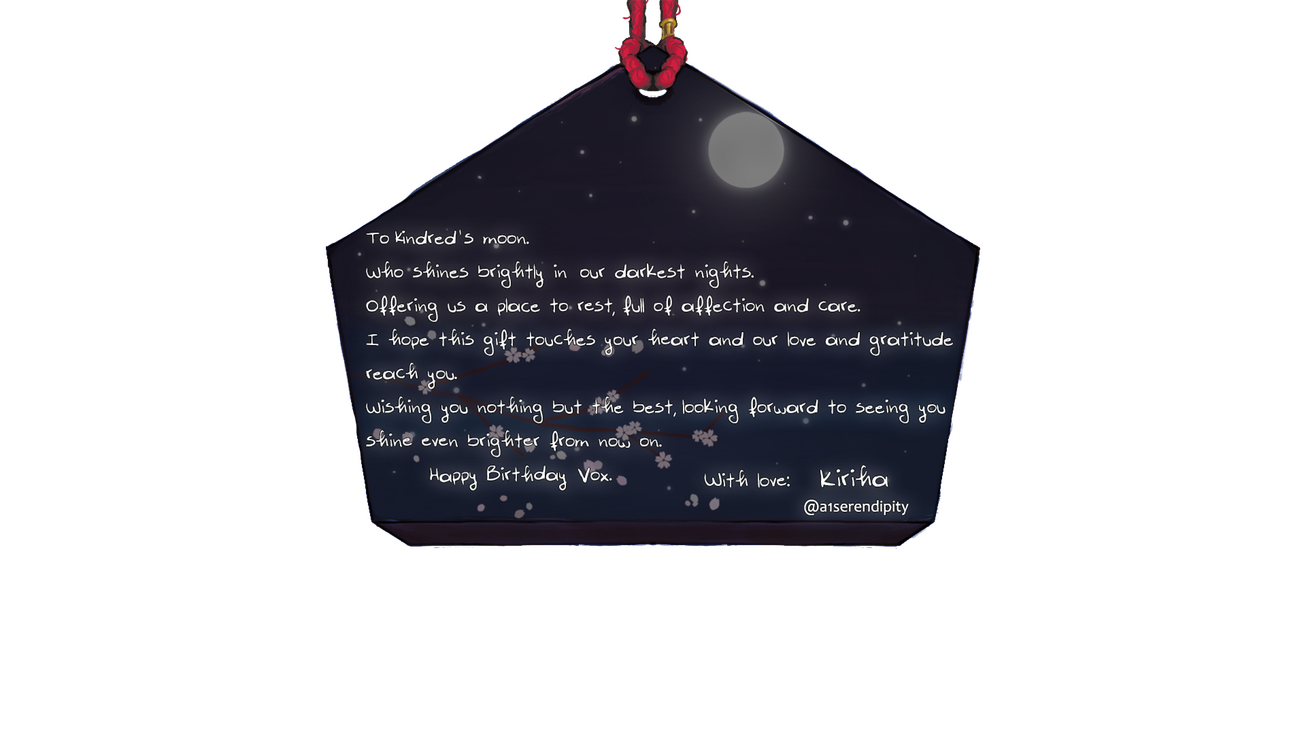 To Kindred's moon.
who shines brightly in our darkest nights.
Offering us a place to rest, full of affection and care.
I hope this gift touches your heart and our love and gratitude
reach you.
Wishing you nothing but the best, looking forward to seeing you
shine even brighter from now on.
Happy Birthday Vox.
With love: Kiriha
@a1serendipity